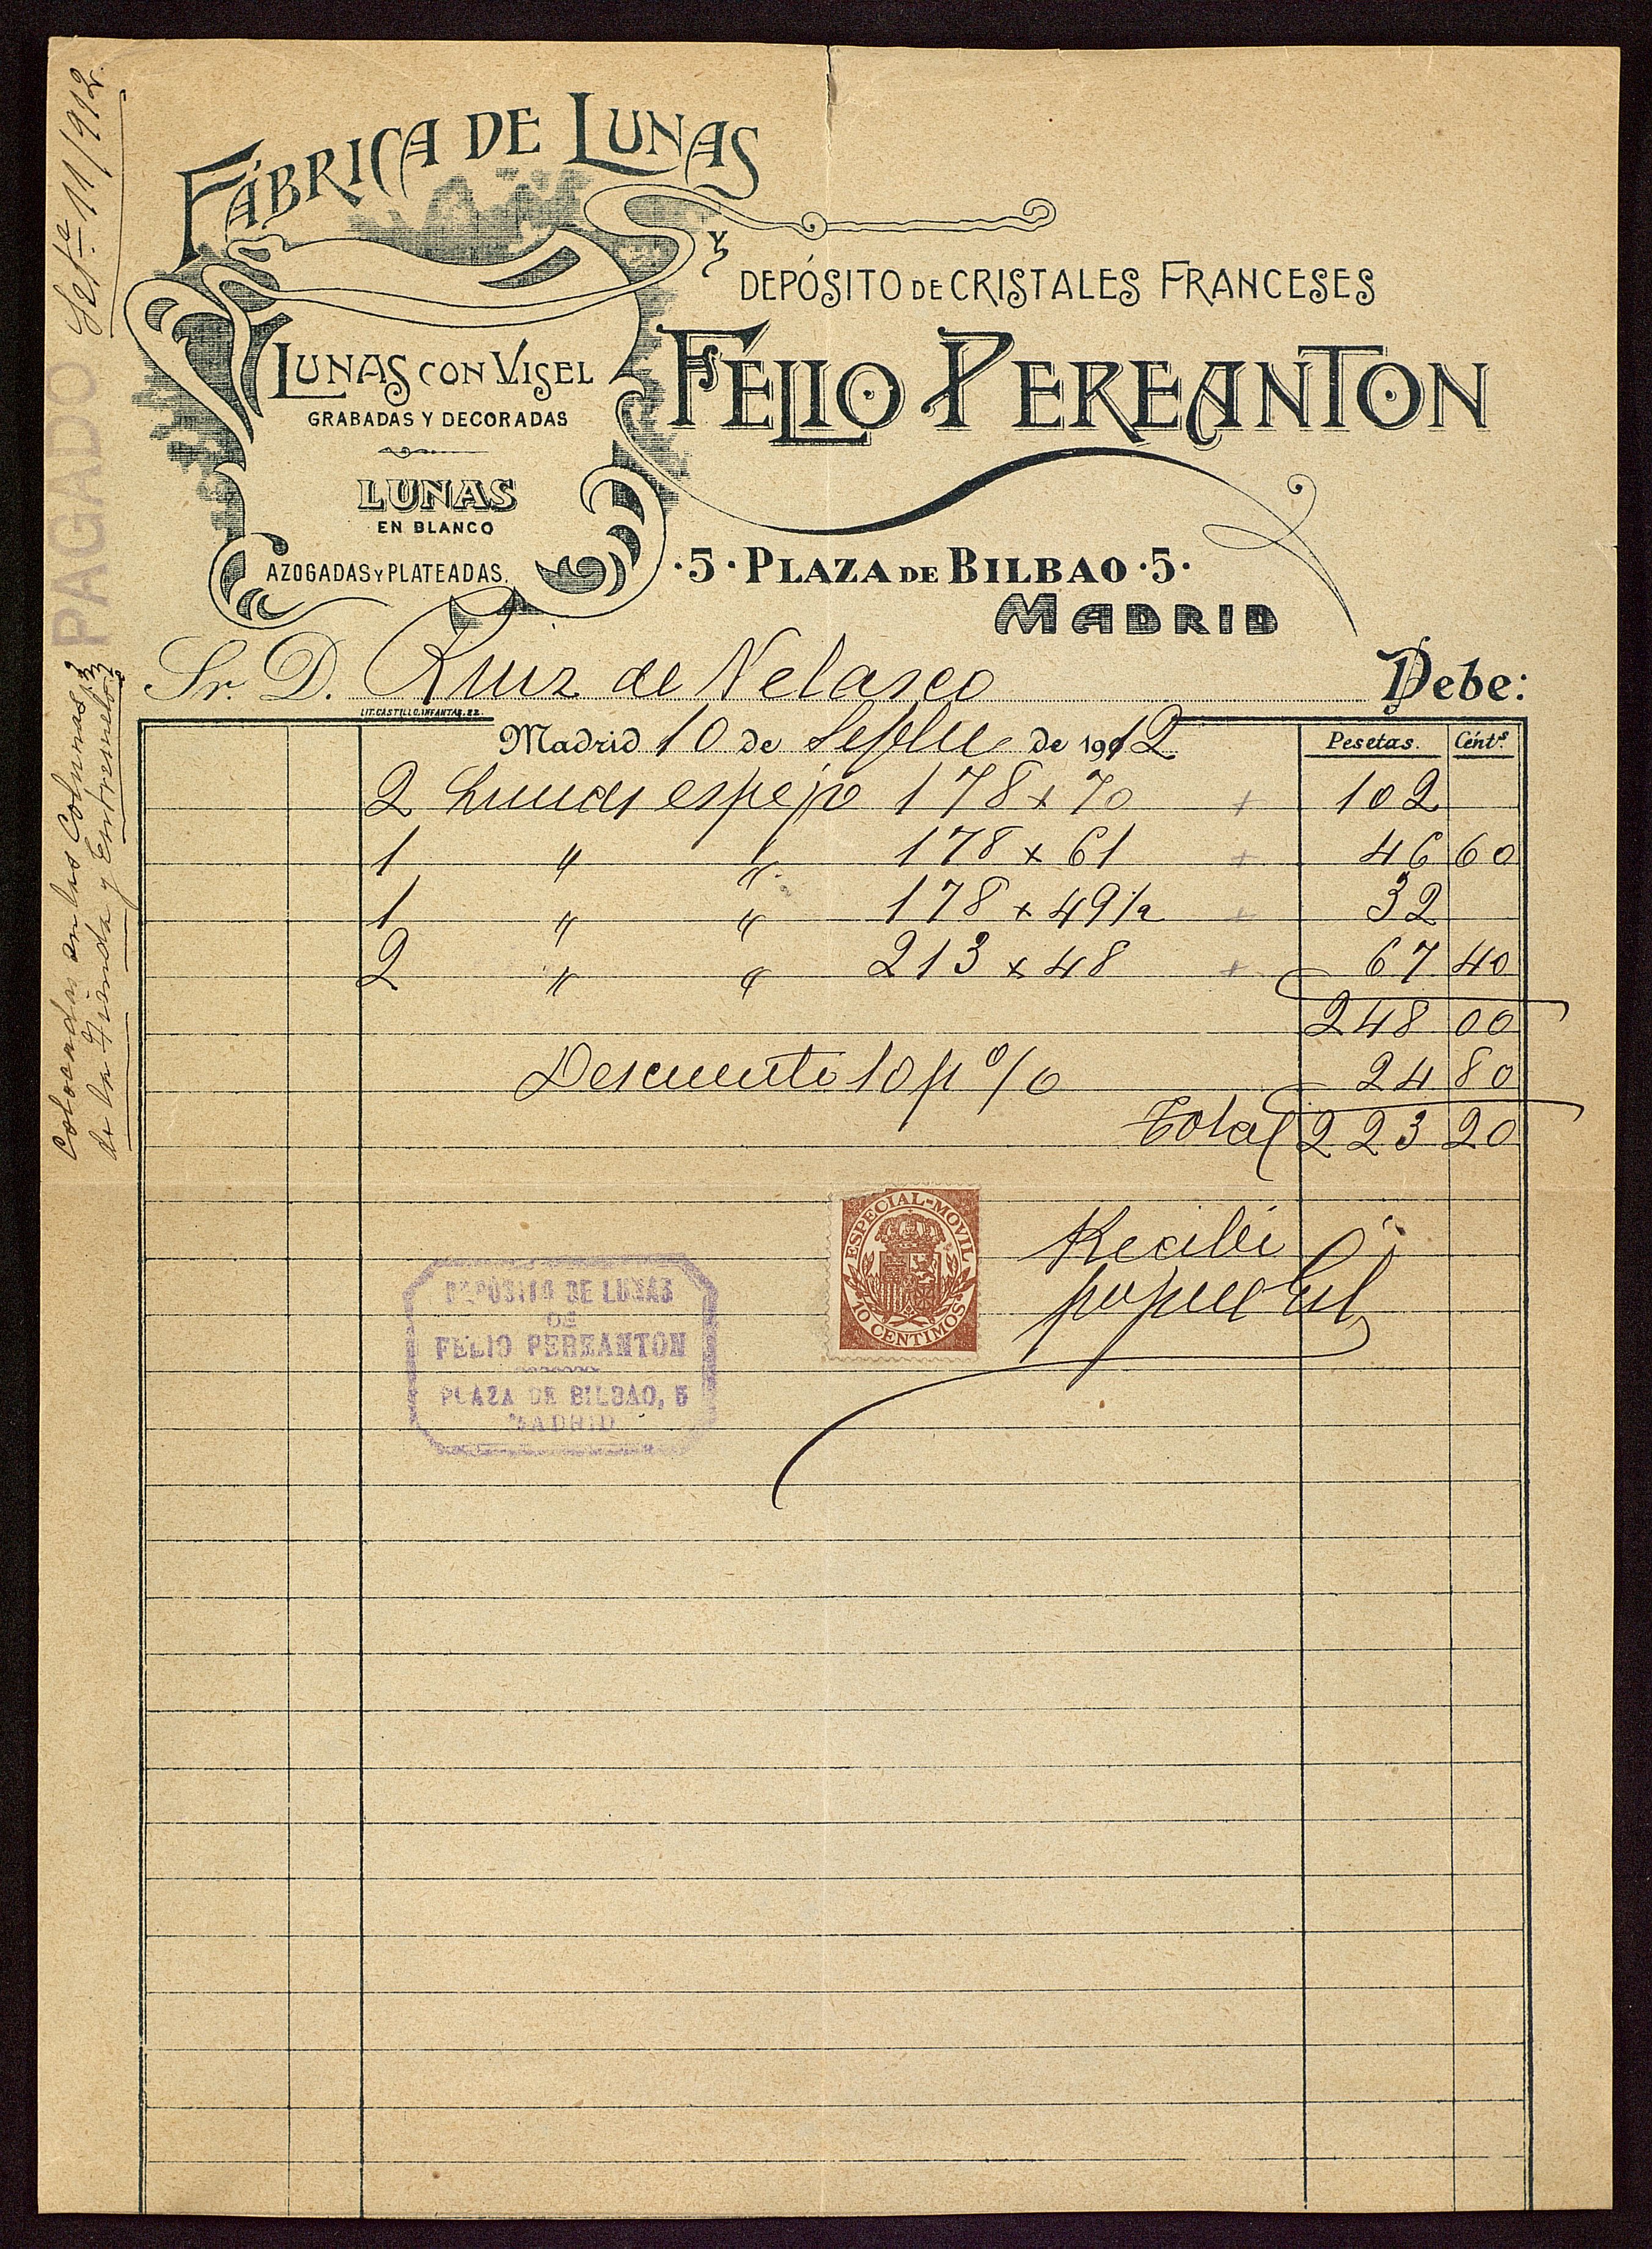 FÁBRICA DE LUNAS
Y
DEPÓSITO DE CRISTALES FRANCESES
FÉLIO PEREANTON
LUNAS CON VISEL
GRABADAS Y DECORADAS
LUNAS
EN BLANCO
AZOGADAS Y PLATEADAS.
·5· PLAZA DE BILBAO ·5·
MADRID
Sr. D. Ruiz de Velasco Debe:
LIT. CASTILLO. INFANTAS. 22
Madrid 10 de Sepbre de 1912 Pesetas. Cénts.
2 Lunas espejo 178 x 70 + 102
1 " " 178 x 61 + 46 60
1 " " 178 x 49 1/2 + 32
2 " " 213 x 48 + 67 40
248 00
Descuento 10 p % 24 80
Total 223 20
ESPECIAL-MOVIL
10 CENTIMOS
Recibi
DEPÓSITO DE LUNAS
DE
FELIO PEREANTON
PLAZA DE BILBAO, 5
MADRID
PAGADO Sete. 11/912
Colocadas en las Colunas
de la Tienda y Entresuelo